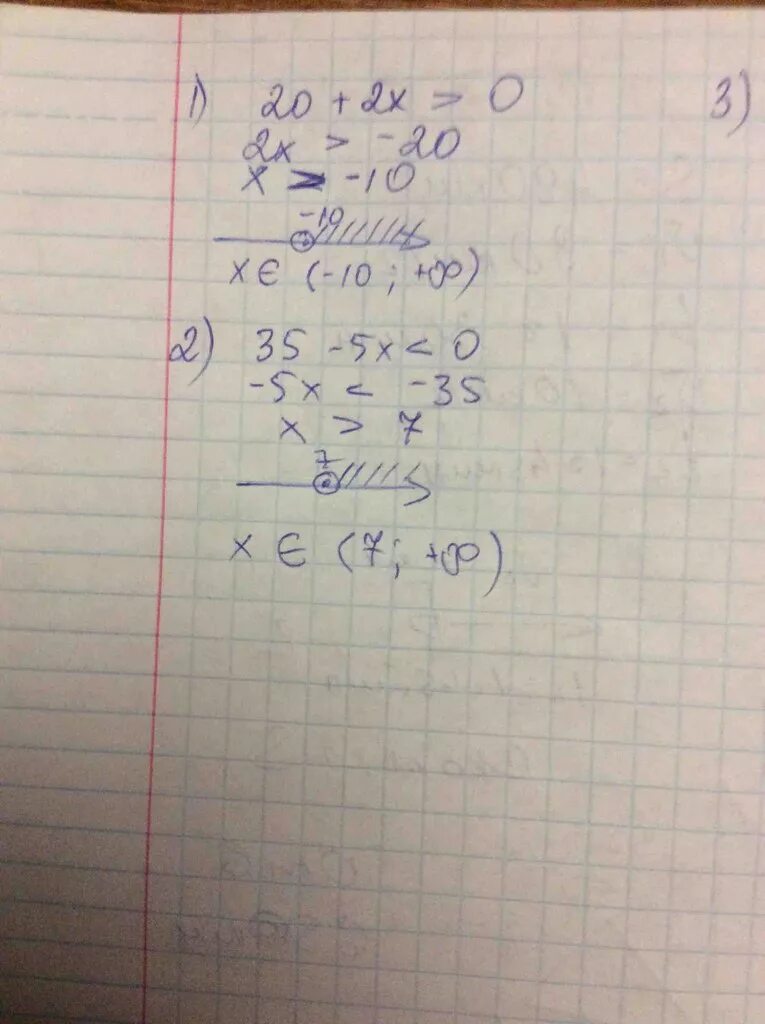 1) 20 + 2x > 0
2x > -20
x > -10
-10
x ∈ (-10 ; +∞)
2) 35 - 5x < 0
-5x < -35
x > 7
7
x ∈ (7 ; +∞)
3)